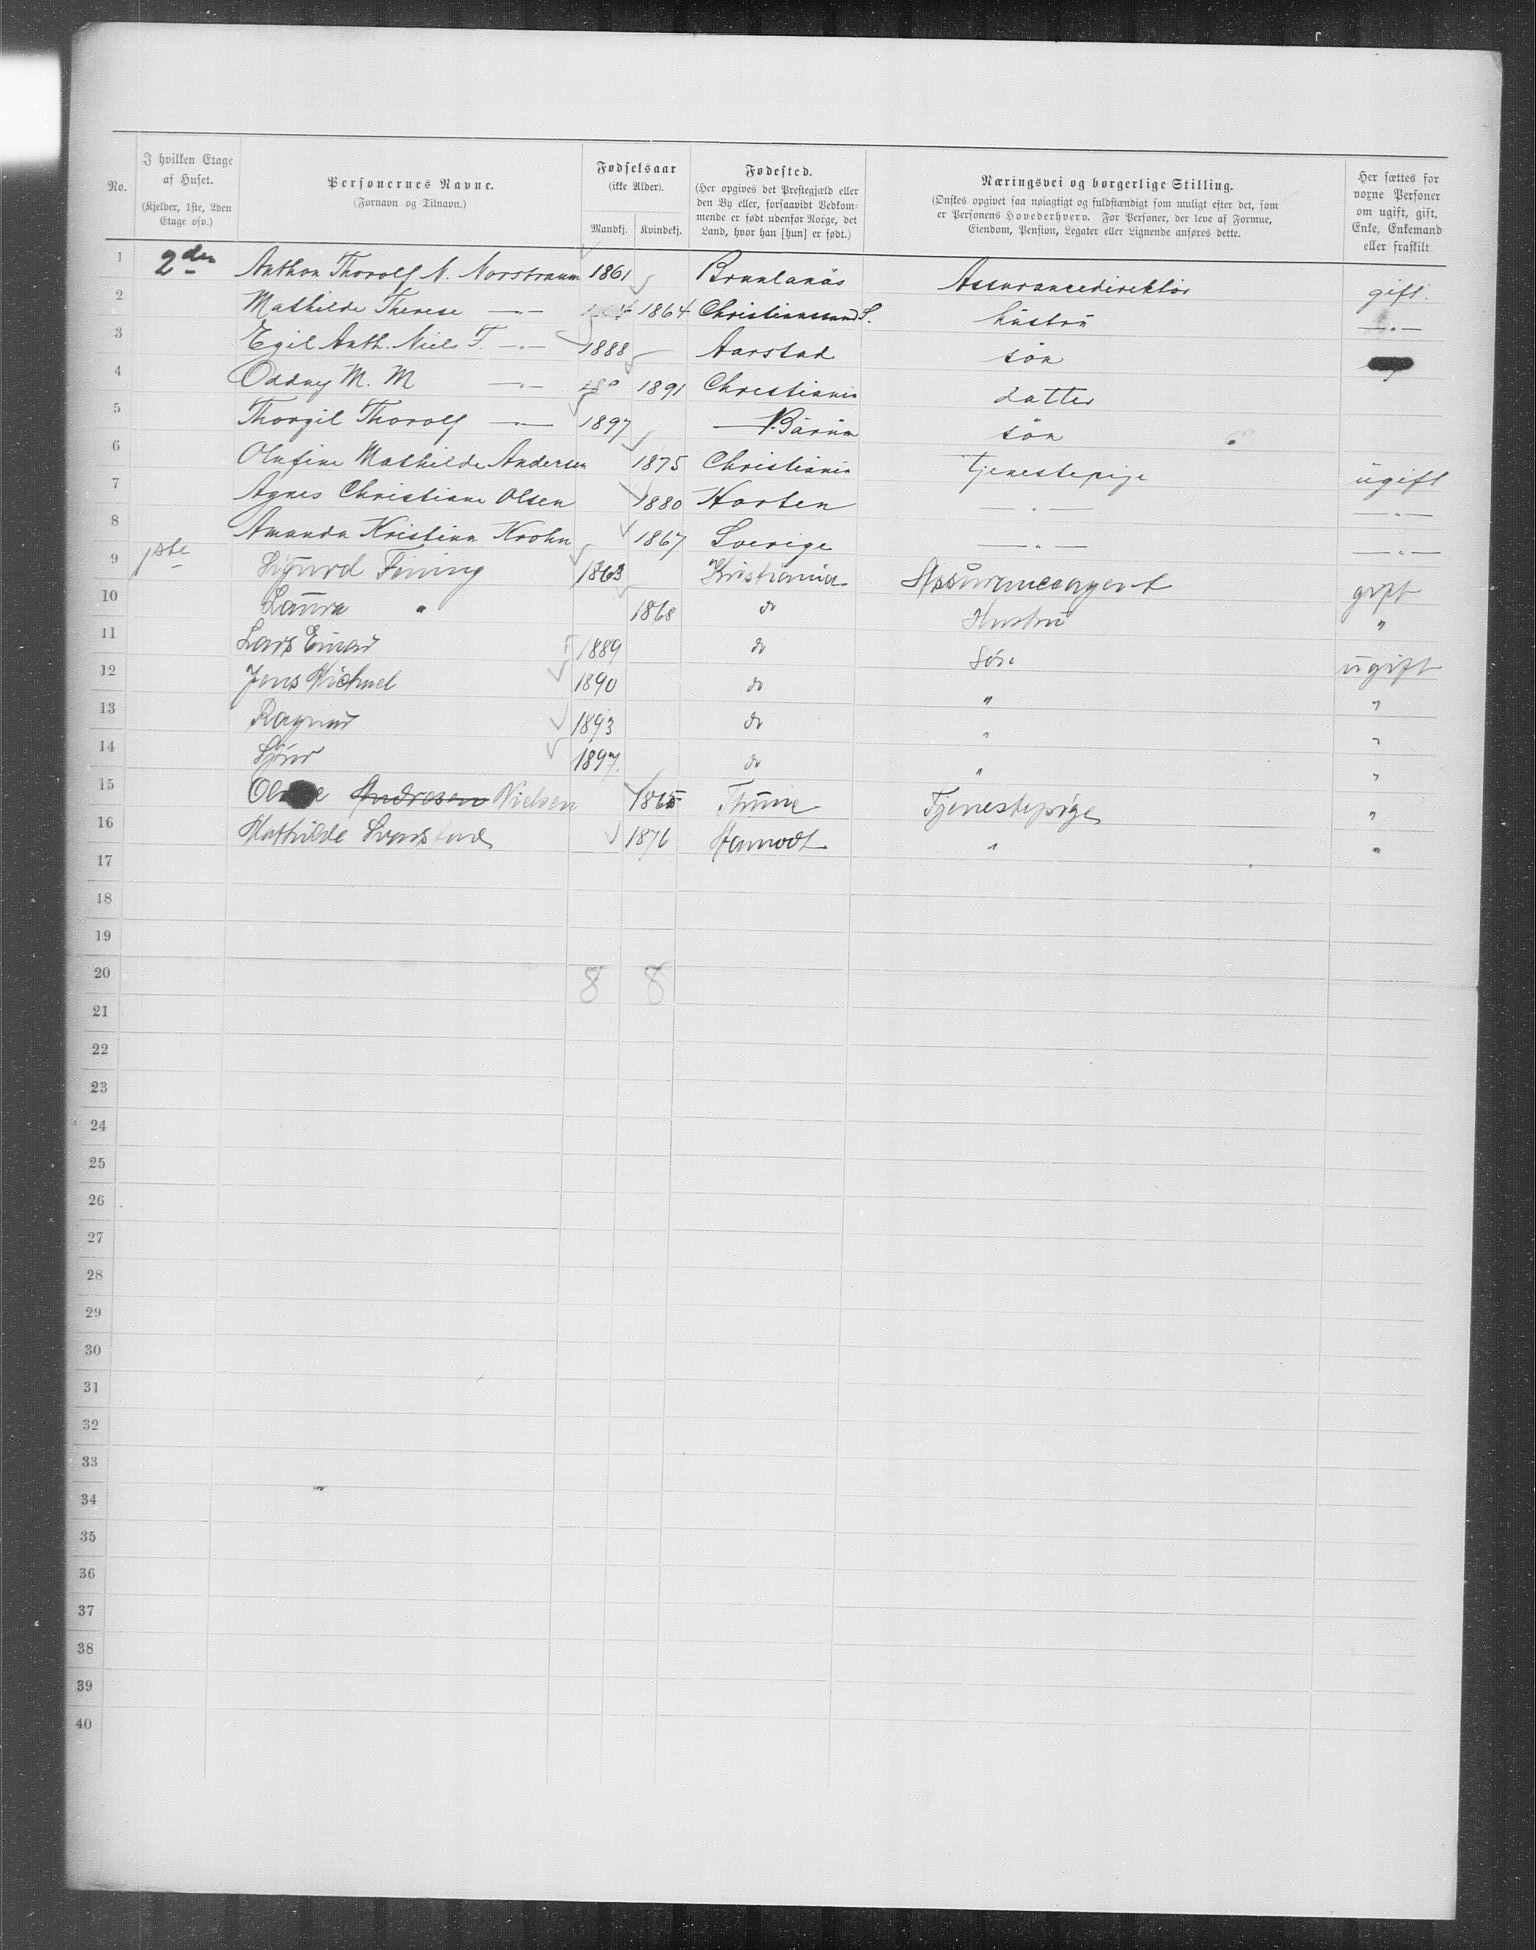 No.
I hvilken Etage af Huset.
(Kjelder, 1ste, 2den Etage osv.)
Personernes Navne.
(Fornavn og Tilnavn.)
Fødselsaar
(ikke Alder).
Mandkj. Kvindekj.
Fødested.
(Her opgives det Prestegjæld eller den By eller, forsaavidt Vedkommende er født udenfor Norge, det Land, hvor han [hun] er født.)
Næringsvei og borgerlige Stilling.
(Ønskes opgivet saa nøiagtigt og fuldstændigt som muligt efter det, som er Personens Hovederhverv. For Personer, der leve af Formue, Eiendom, Pension, Legater eller Lignende anføres dette.
Her sættes for voxne Personer om ugift, gift, Enke, Enkemand eller fraskilt
1 2den Anthon Thorolf N. Norstraum 1861 Brunlanæs Assurancedirektör gift.
2 Mathilde Therese —"— 1864 Christianssand S. hustru —"—
3 Egil Anth. Niels T. —"— 1888 Aarstad sön
4 Oddny M. M —"— 1891 Christiania datter
5 Thorgil Thorolf —"— 1897 V. Bärum sön
6 Olufine Mathilde Andersen 1875 Christiania Tjenestepige ugift
7 Agnes Christiane Olsen 1880 Horten —"— —"—
8 Amanda Kristina Krohn 1867 Sverige —"— —"—
9 1ste Sigurd Fining 1863 Kristiania Assuranceagent gift
10 Laura " 1868 do Hustru "
11 Lars Einar 1889 do Søn ugift
12 Jens Michael 1890 do " "
13 Ragnar 1893 do " "
14 1897. do " "
15 Andresen Nielsen 1865 Tjenestepige "
16 Mathilde 1876 " "
17
18
19
20 8 8
21
22
23
24
25
26
27
28
29
30
31
32
33
34
35
36
37
38
39
40